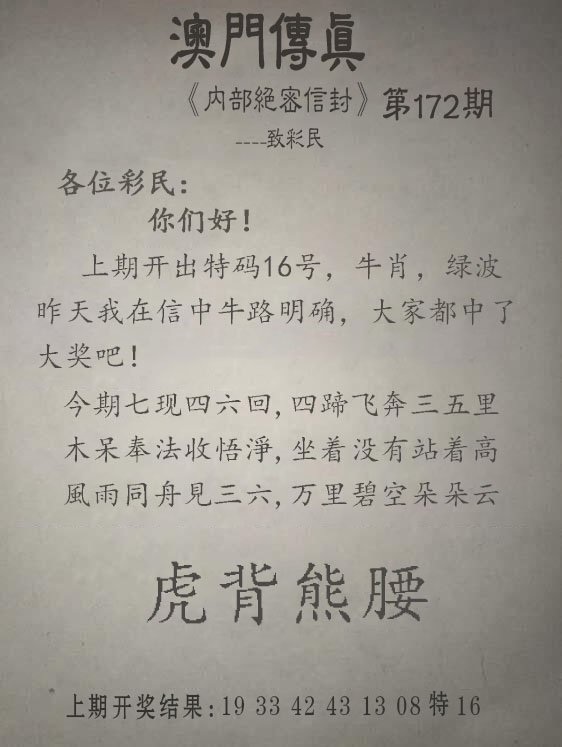 澳門傳眞
《内部絕密信封》第172期
----致彩民
各位彩民：
你们好！
上期开出特码16号，牛肖，绿波
昨天我在信中牛路明确，大家都中了
大奖吧！
今期七现四六回,四蹄飞奔三五里
木呆奉法收悟淨,坐着没有站着高
風雨同舟見三六,万里碧空朵朵云
虎背熊腰
上期开奖结果:19 33 42 43 13 08 特 16